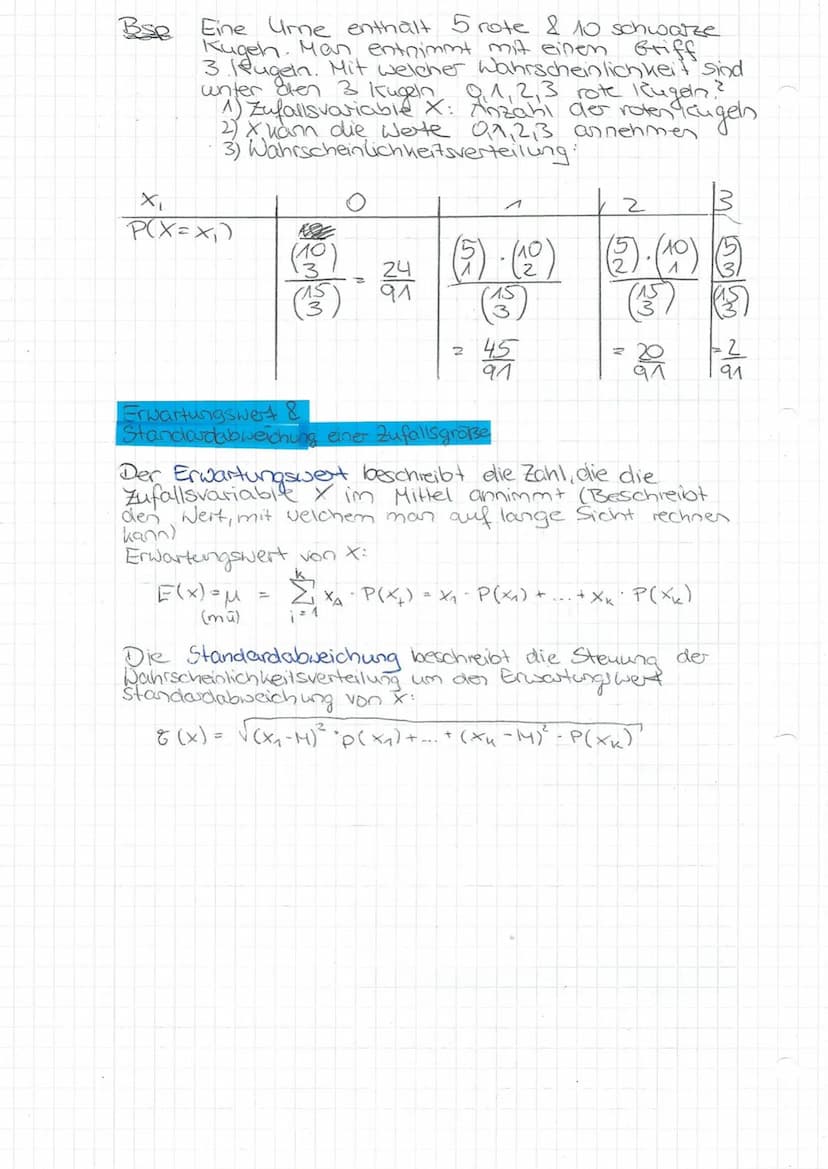 Bsp Eine Urne enthält 5 rote & 10 schwarze
Kugeln. Man entnimmt mit einen Griff
3 Kugeln. Mit welcher Wahrscheinlichkeit sind
unter den 3 Kugeln 0,1,2,3 rote Kugeln?
1) Zufallsvariable X: Anzahl der roten Kugeln
2) X kann die Werte 0,1,2,3 annehmen
3) Wahrscheinlichkeitsverteilung:
x₁ | 0 | 1 | 2 | 3
P(X=x₁) | (10 3)/(15 3) = 24/91 | (5 1)·(10 2)/(15 3) = 45/91 | (5 2)·(10 1)/(15 3) = 20/91 | (5 3)/(15 3) = 2/91
Erwartungswert &
Standardabweichung einer Zufallsgröße
Der Erwartungswert beschreibt die Zahl, die die
Zufallsvariable X im Mittel annimmt (Beschreibt
den Wert, mit welchem man auf lange Sicht rechnen
kann)
Erwartungswert von X:
E(x) = μ = k Σ i=1 x₁ · P(x₁) = x₁ · P(x₁) + ... + xₖ · P(xₖ)
(mü)
Die Standardabweichung beschreibt die Steuung der
Wahrscheinlichkeitsverteilung um den Erwartungswert
Standardabweichung von X:
σ(x) = √((x₁-M)² · p(x₁) + ... + (xₖ-M)² · P(xₖ))